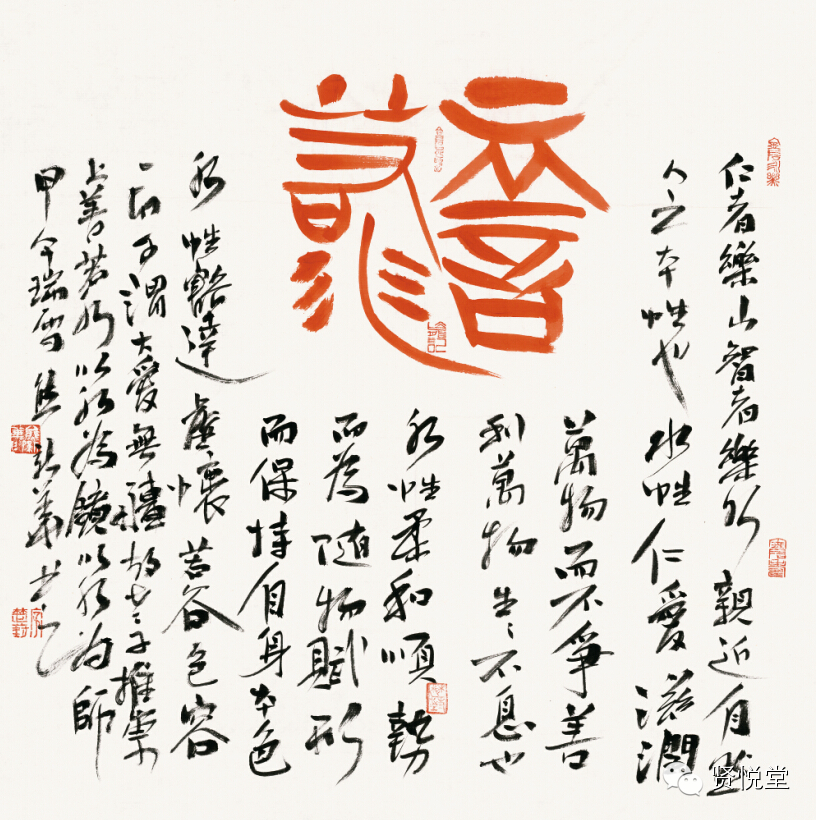 仁者樂山智者樂水親近自然
人之本性也水性仁愛滋潤
萬物而不爭善
利萬物生生不息也
水性柔和順勢
而為隨物賦形
而保持自身本色
水性豁達虛懷若谷包容
一切可謂大愛無疆故老子推崇
上善若水以水為鏡以水為師
甲午瑞雪
贤悦堂